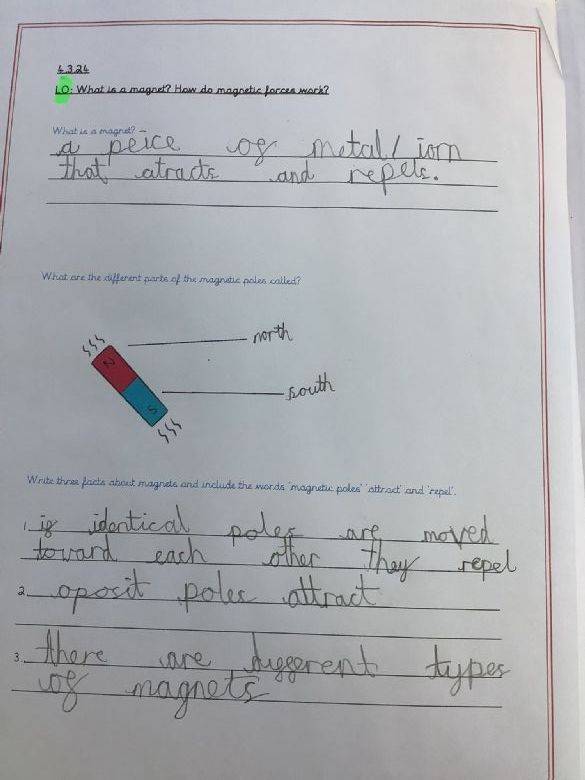 4.3.24
LO: What is a magnet? How do magnetic forces work?
What is a magnet? –
a peice of metal/iorn
that atracts and repels.
What are the different parts of the magnetic poles called?
north
N
S
south
Write three facts about magnets and include the words 'magnetic poles' 'attract' and 'repel'.
1. if identical poles are moved
toward each other they repel
2. oposit poles attract
3. there are different types
of magnets